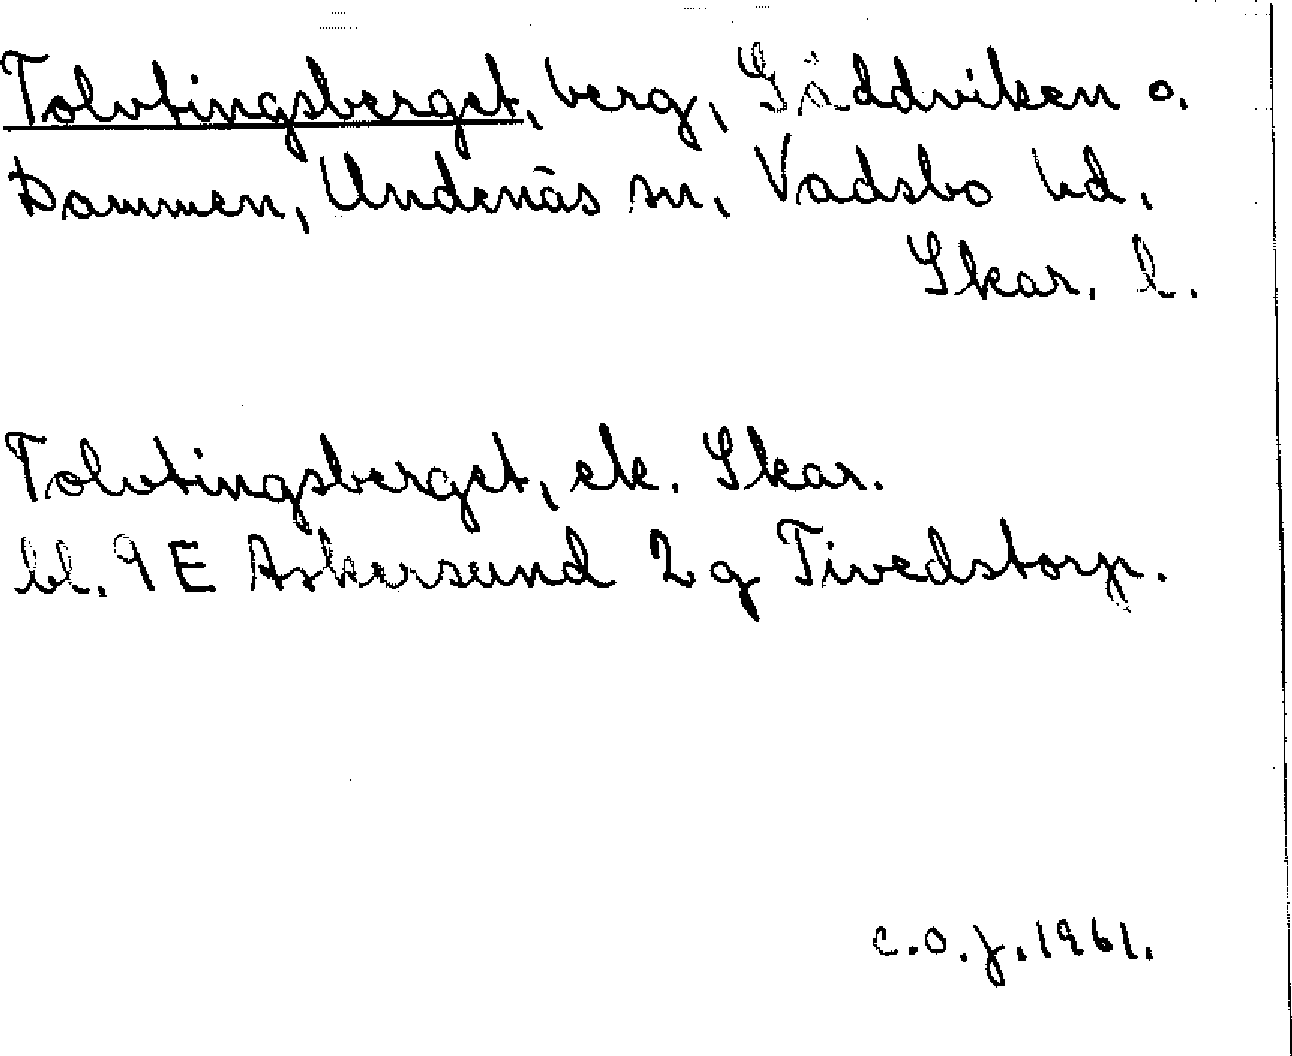 Tolvtingsberget, berg, Gäddviken o.
Dammen, Undenäs sn, Vadsbo hd,
Skar. l.
Tolvtingsberget, ek. Skar.
bl. 9 E Askersund 2 g Tivedstorp.
C.O.J. 1961.